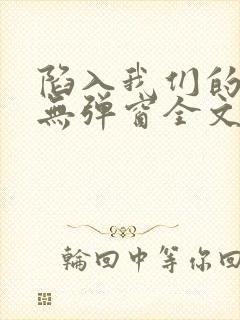 陷入我们的
無弹窗全文
輪回中等你回